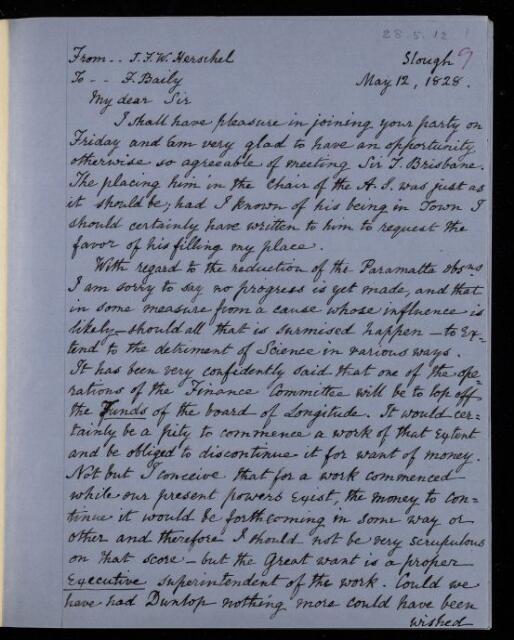 28.5.12 1
From .. J.F.W. Herschel Slough 9
To - - F. Baily May 12, 1828.
My dear Sir
I shall have pleasure in joining your party on
Friday and am very glad to have an opportunity
otherwise so agreeable of meeting Sir T. Brisbane.
The placing him in the Chair of the A.S. was just as
it should be; had I known of his being in Town I
should certainly have written to him to request the
favor of his filling my place.
With regard to the reduction of the Paramatta obsns
I am sorry to say no progress is yet made, and that
in some measure from a cause whose influence is
likely – should all that is surmised happen – to Ex=
tend to the detriment of Science in various ways.
It has been very confidently said that one of the ope=
rations of the Finance Committee will be to lop off
the Funds of the board of Longitude. It would cer=
tainly be a pity to commence a work of that Extent
and be obliged to discontinue it for want of money.
Not but I conceive that for a work commenced
while our present powers Exist, the money to con=
tinue it would be forthcoming in some way or
other and therefore I should not be very scrupulous
on that score – but the Great want is a proper
Executive superintendent of the work. Could we
have had Dunlop nothing more could have been
wished